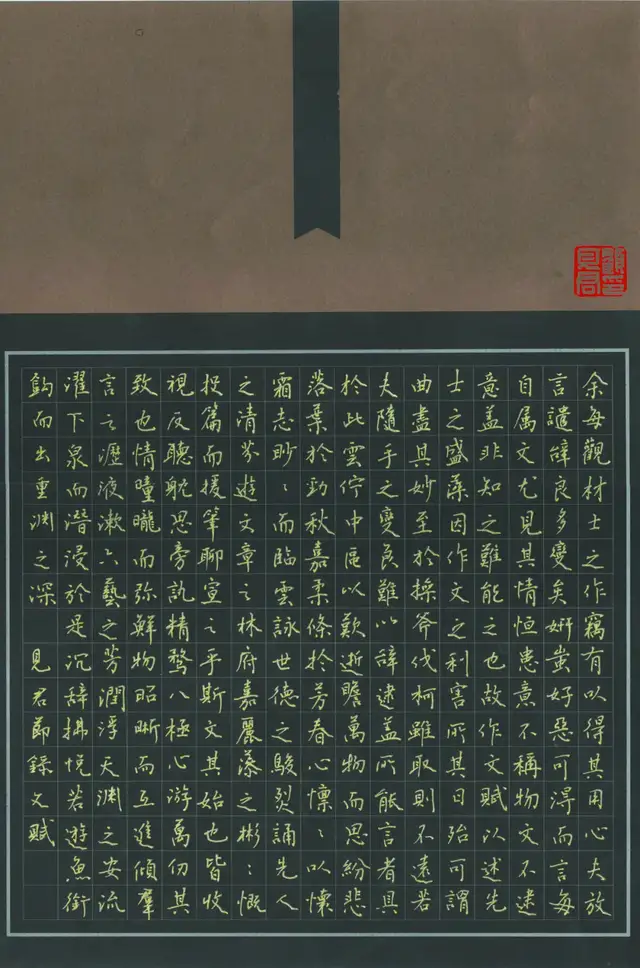 余每觀材士之作竊有以得其用心夫放
言譴辭良多變矣妍蚩好惡可得而言每
自属文尤見其情恒患意不稱物文不逮
意盖非知之難能之也故作文賦以述先
士之盛藻因作文之利害所其日殆可謂
曲盡其妙至於操斧伐柯雖取則不遠若
夫隨手之變良難以辞逮盖所能言者具
於此雲佇中區以歎逝瞻萬物而思紛悲
落葉於勁秋嘉柔條於芳春心懍〻以懷
霜志眇〻而臨雲詠世德之駿烈誦先人
之清芬遊文章之林府嘉麗藻之彬〻慨
投篇而援筆聊宣之乎斯文其始也皆收
視反聽耽思旁訊精騖八極心游萬仞其
致也情曈曨而弥鮮物昭晰而互進傾羣
言之瀝液漱六藝之芳潤浮天淵之安流
濯下泉而潛浸於是沉辞拂悅若遊魚銜
鈎而出重淵之深 見君節錄文賦